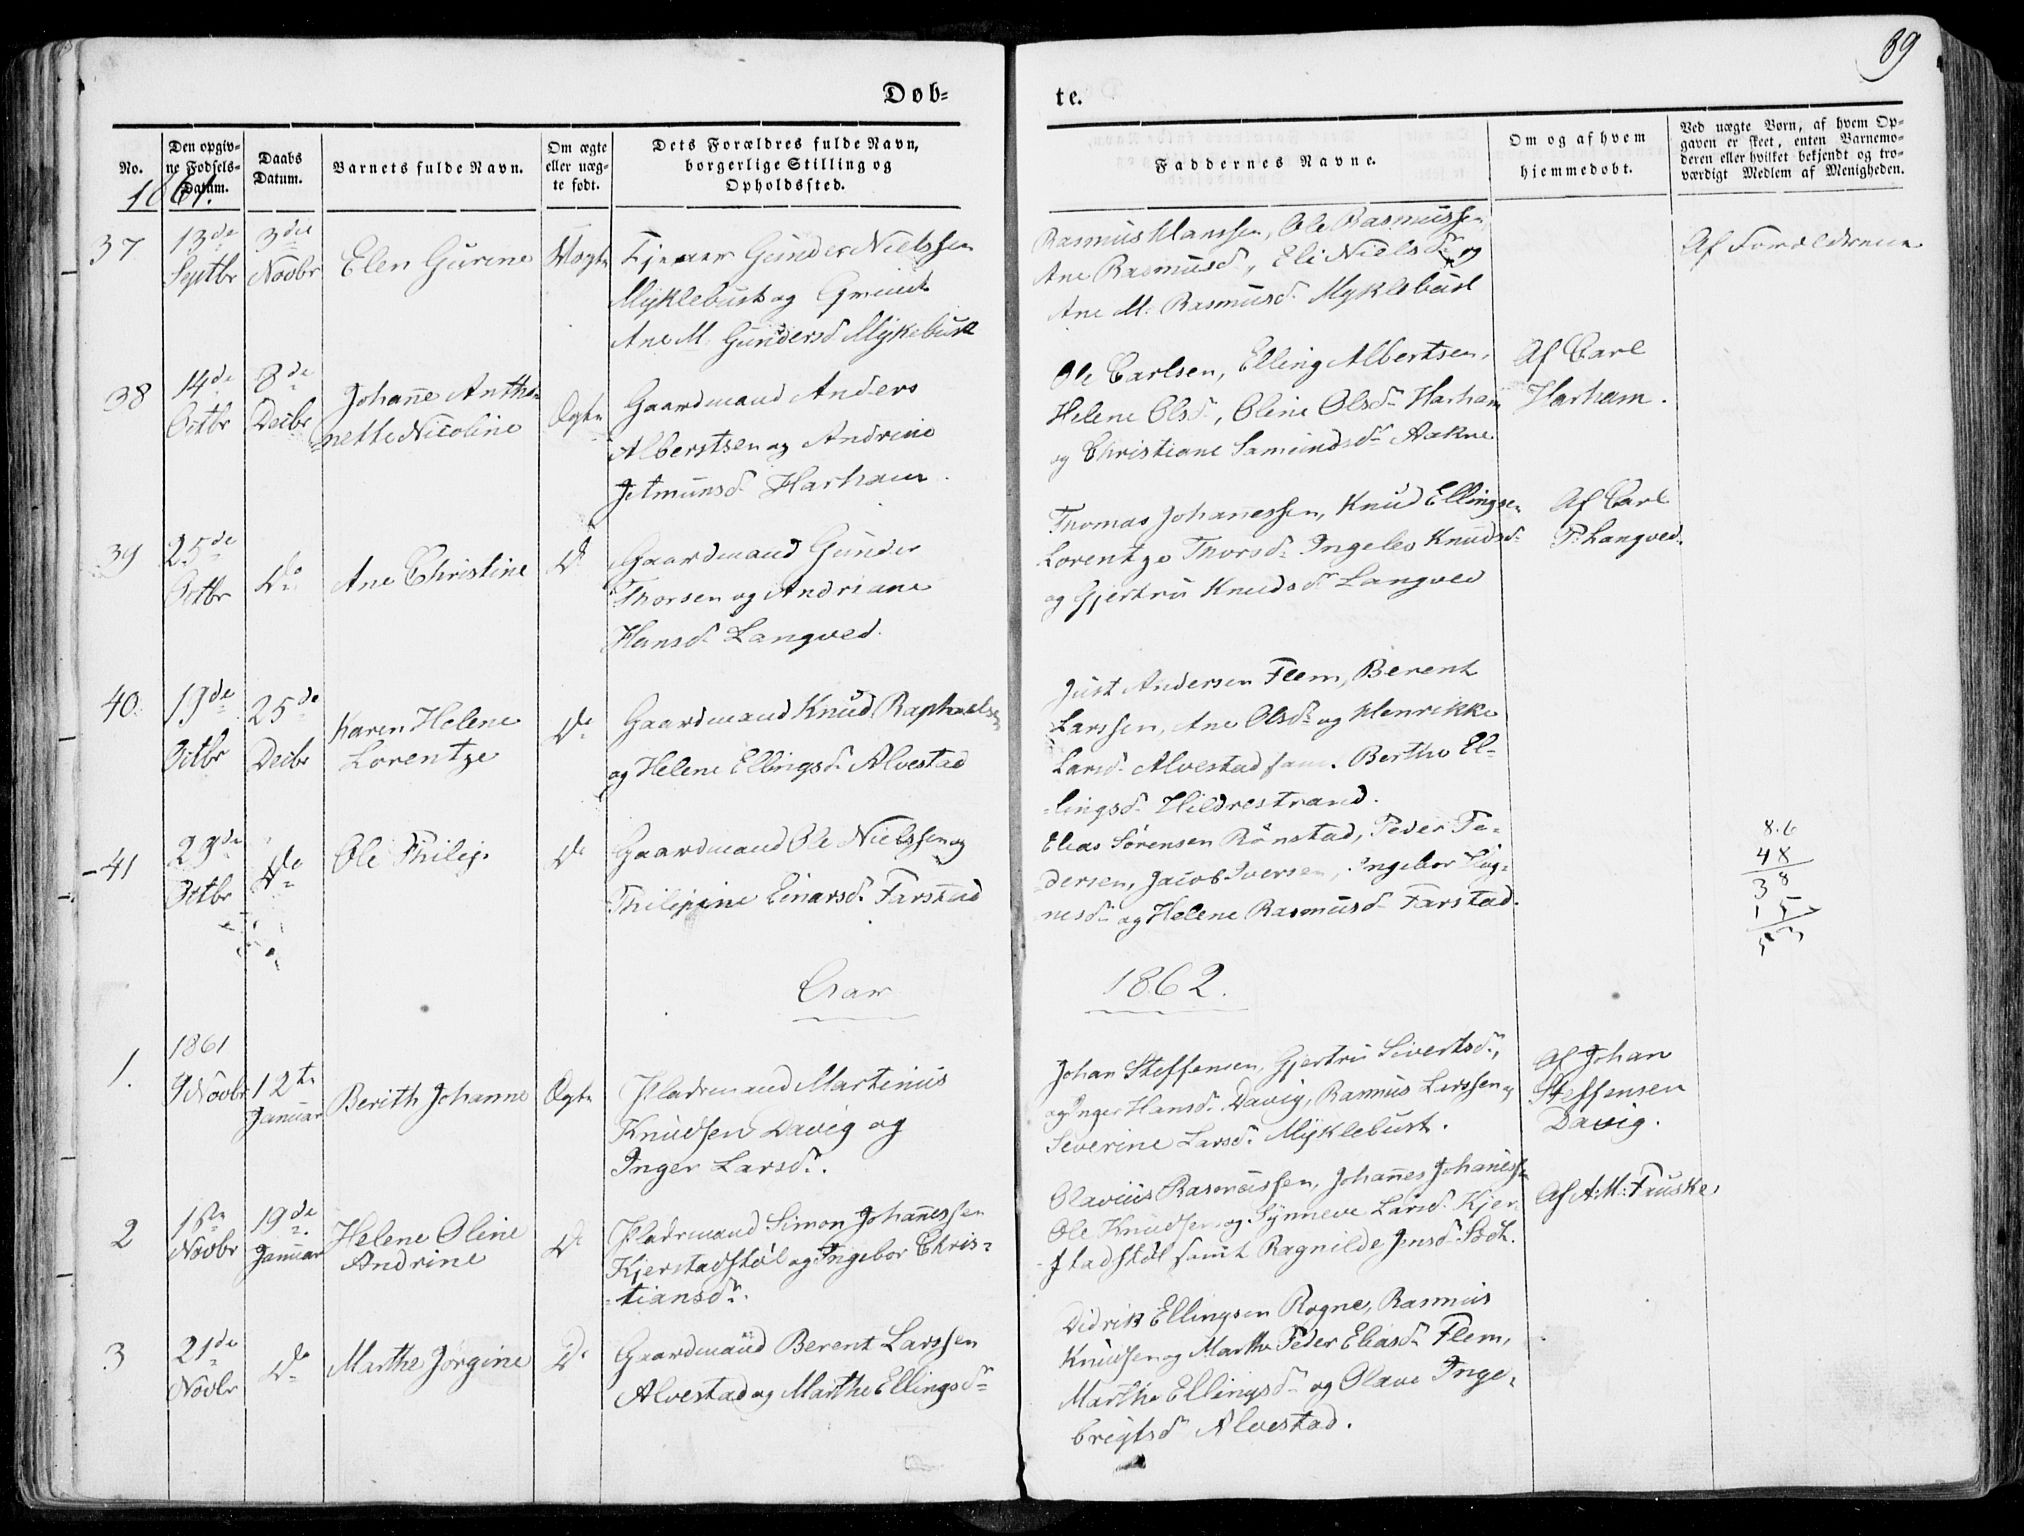 89
Døb-
te.
No.
Den opgiv-
ne Fødsels-
Datum.
Daabs
Datum.
Barnets fulde Navn.
Om ægte
eller uæg-
te født.
Dets Forældres fulde Navn,
borgerlige Stilling og
Opholdssted.
Faddernes Navne.
Om og af hvem
hjemmedøbt.
Ved uægte Børn, af hvem Op-
gaven er skeet, enten Barnemo-
deren eller hvilket bekjendt og tro-
værdigt Medlem af Menigheden.
1861.
37
13de
Septbr
3die
Novbr
Elen Gurine
Uægte
Gunder Nielssen
Myklebust og
Ane M. Gundersd Myklebust
Rasmus Hanssen, Ole Rasmussen
Ane Rasmusd, Eli Nielsdr og
Ane M. Rasmusd. Myklebust
Af Forældrene
38
14de
Octbr
8de
Decbr
Johanne Antho-
nette Nicoline
Ægte
Gaardmand Anders
Alberstsen og Andrine
Jetmunsd. Harham.
Ole Carlsen, Elling Albertsen,
Helene Olsd., Oline Olsdr Harham
og Christiane Samundsdr Aakne
Af Carl
Harham.
39
25de
Octbr
Do
Ane Christine
Do
Gaardmand Gunder
Thorsen og Andriane
Hansd. Langved.
Thomas Johanessen, Knud Ellingsen
Lorentze Thorsd. Ingeles Knudsd.
og Gjertru Knudsdr Langved
Af Carl
P. Langved.
40.
19de
Octbr
25de
Decbr
Karen Helene
Lorentze
Do
Gaardmand Knud Raphaelsen
og Helene Ellingsd. Alvestad
Just Andersen Flem, Berent
Larssen, Ane Olsdr og Henrikke
Larsd. Alvestad samt Berthe El-
lingsd. Hildrestrand.
41
29de
Octbr
Do
Ole Philip
Do
Gaardmand Ole Nielssen og
Philipine Einarsd. Farstad
Elias Sørensen Rønstad, Peder Pe-
dersen, Jacob Iversen, Ingebor
nesdr og Helene Rasmusd. Farstad.
8.6
48
38
15
53
Aar
1862.
1.
1861
9 Novbr
12te
Januar
Berith Johanne
Ægte
Pladsmand Martinus
Knudsen Davig og
Inger Larsdr.
Johan Steffensen, Gjertru Sivertsdr,
og Inger Hansd. Davig, Rasmus Larssen og
Severine Larsd. Myklebust.
Af Johan
Steffensen
Davig.
2
Novbr
19de
Januar
Helene Oline
Andrine
Do
Pladsmand Simon Johanessen
Kjerstadstøl og Ingebor Chris-
tiansdr.
Olavius Rasmussen, Johannes Johanessen
Ole Knudsen og Synneve Larsd. Kjer
stadstøl samt Ragnilde Jensd.
Af A. M. Fauske,
3
21de
Novbr
Do
Marthe Jørgine
Do
Gaardmand Berent Larssen
Alvestad og Marthe Ellingsdr
Didrik Ellingsen Rogne, Rasmus
Knudsen og Marthe Peder Eliasdr Flem,
Marthe Ellingsdr og Olave Inge-
brigtsdr Alvestad.